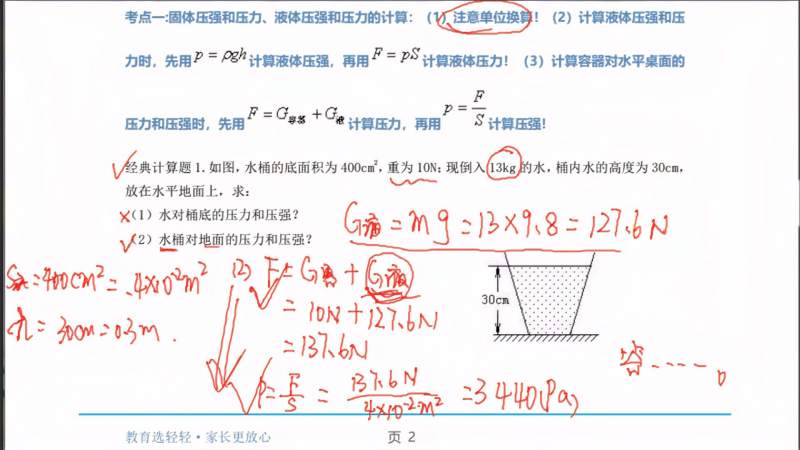 考点一:固体压强和压力、液体压强和压力的计算：（1）注意单位换算！（2）计算液体压强和压
力时，先用 p = ρgh 计算液体压强，再用 F = pS 计算液体压力！（3）计算容器对水平桌面的
压力和压强时，先用 F = G容器 + G液 计算压力，再用 p = F/S 计算压强！
经典计算题 1. 如图，水桶的底面积为 400cm²，重为 10N；现倒入 13kg 的水，桶内水的高度为 30cm，
放在水平地面上，求：
（1）水对桶底的压力和压强？
（2）水桶对地面的压力和压强？
G液 = mg = 13×9.8 = 127.6N
= 400cm² = 4×10⁻²m²
h = 30cm = 0.3m.
(2) F = G容 + G液
= 10N + 127.6N
= 137.6N
P = F/S = 137.6N / 4×10⁻²m² = 3440(Pa)
30cm
教育选轻轻·家长更放心
页 2